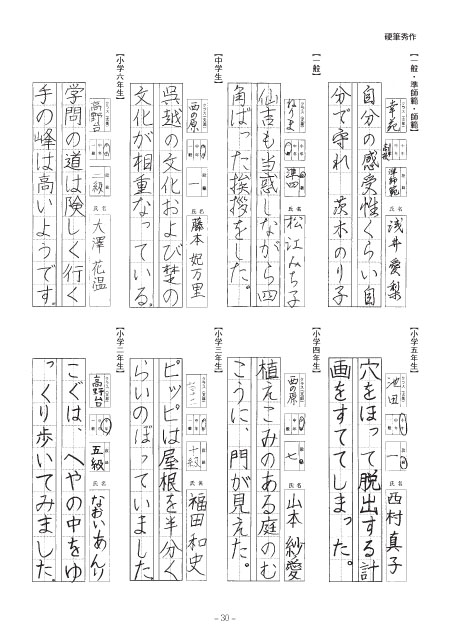 硬筆秀作
【一般・準師範・師範】
幸苑
準師範
氏名
浅井愛梨
自分の感受性くらい自
分で守れ 茨木のり子
【一般】
ねりま
準四
氏名
松江みち子
仙吉も当惑しながら四
角ばった挨拶をした。
【中学生】
西の原
一
氏名
藤本妃万里
呉越の文化および楚の
文化が相重なっている。
【小学六年生】
高野台
二級
氏名
大澤花温
学問の道は険しく行く
手の峰は高いようです。
【小学五年生】
池田
一
氏名
西村真子
穴をほって脱出する計
画をすててしまった。
【小学四年生】
西の原
七
氏名
山本紗愛
植えこみのある庭のむ
こうに、門が見えた。
【小学三年生】
十級
氏名
福田和史
ピッピは屋根を半分く
らいのぼっていました
【小学二年生】
高野台
五級
氏名
なおいあんり
こぐは、へやの中をゆ
っくり歩いてみました。
- 30 -